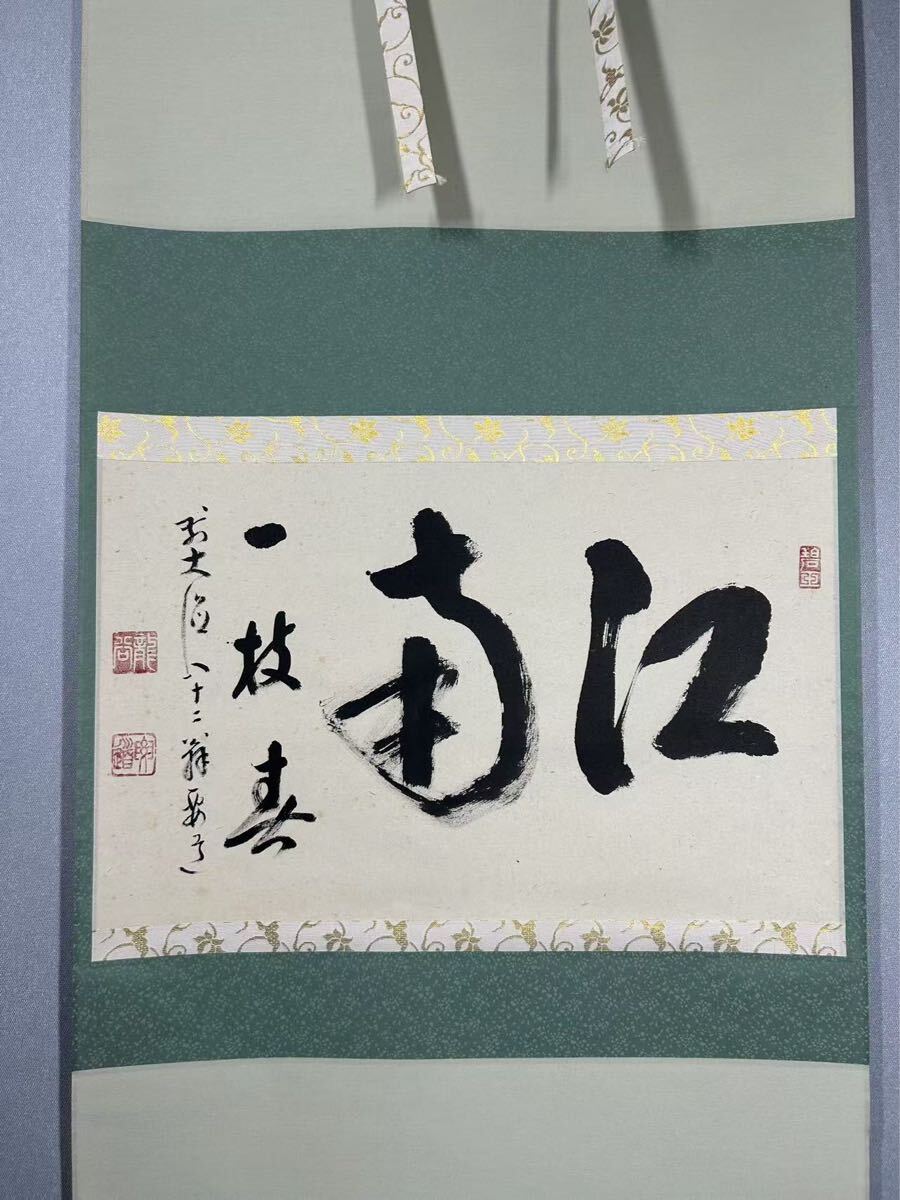 江南
一枝春
前大徳八十二翁